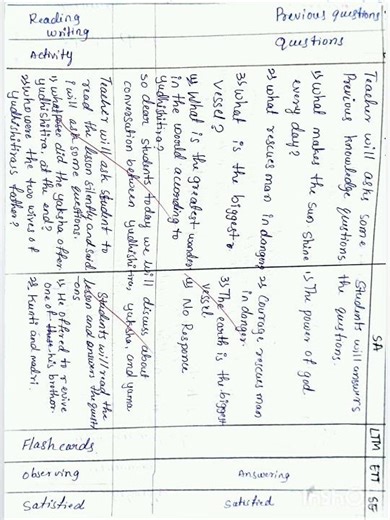 Previous questions
Questions
Teacher will asks some
Previous knowledge questions
1) What makes the Sun Shine
every day?
2) what rescues man in danger
3) What is the biggest
vessel?
4) What is the greatest wonder
in the world according to
yudhishitira?
Students will answers
the questions.
1) The power of god.
2) Courage rescues man
in danger.
3) The earth is the biggest
vessel.
4) No Response
SA
LTM
ETT
SE
Answering
Satisfied
so dear students today we will discuss about
conversation between yudhishitira, yaksha, and yama
Reading
writing
Activity
Teacher will ask student to
read the lesson silently and said
I will ask some questions.
1) what offer did the yaksha offer
yudhishitira at the end?
2) Who were the two wives of
yudhishitira's father?
Students will read the
lesson and answers the questi
-ons
1) He offered to revive
one of his brother.
2) Kunti and madri.
Flash cards
observing
Satisfied